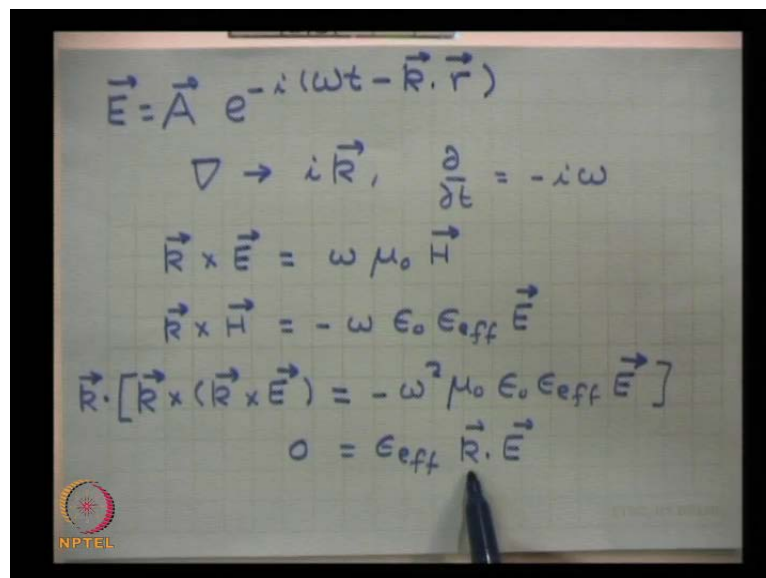 E⃗ = A⃗ e^{-i(ωt - k⃗ · r⃗)}
∇ → i k⃗, ∂/∂t = -iω
k⃗ × E⃗ = ω μ₀ H⃗
k⃗ × H⃗ = - ω ε₀ ε_eff E⃗
k⃗ · [k⃗ × (k⃗ × E⃗) = - ω² μ₀ ε₀ ε_eff E⃗]
0 = ε_eff k⃗ · E⃗
NPTEL